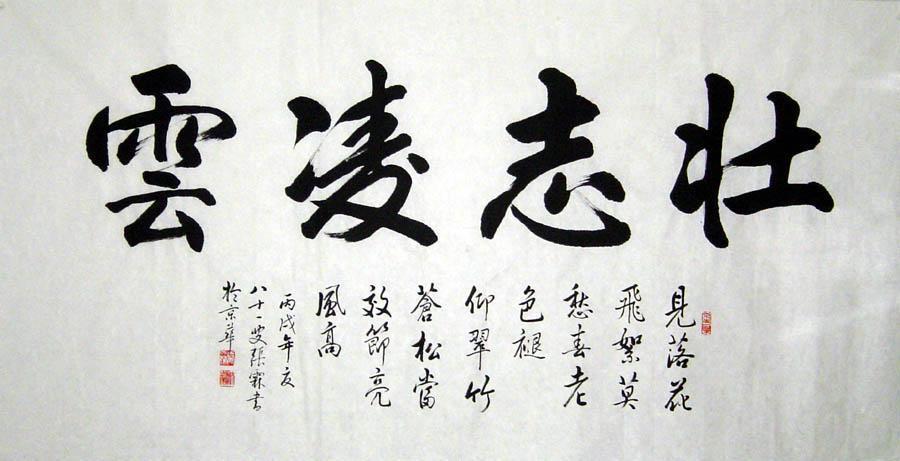 壯志凌雲
見落花
飛絮莫
愁春老
色褪
仰翠竹
蒼松當
效節亮
風高
丙戌年夏
八十一叟張霖書
於京華